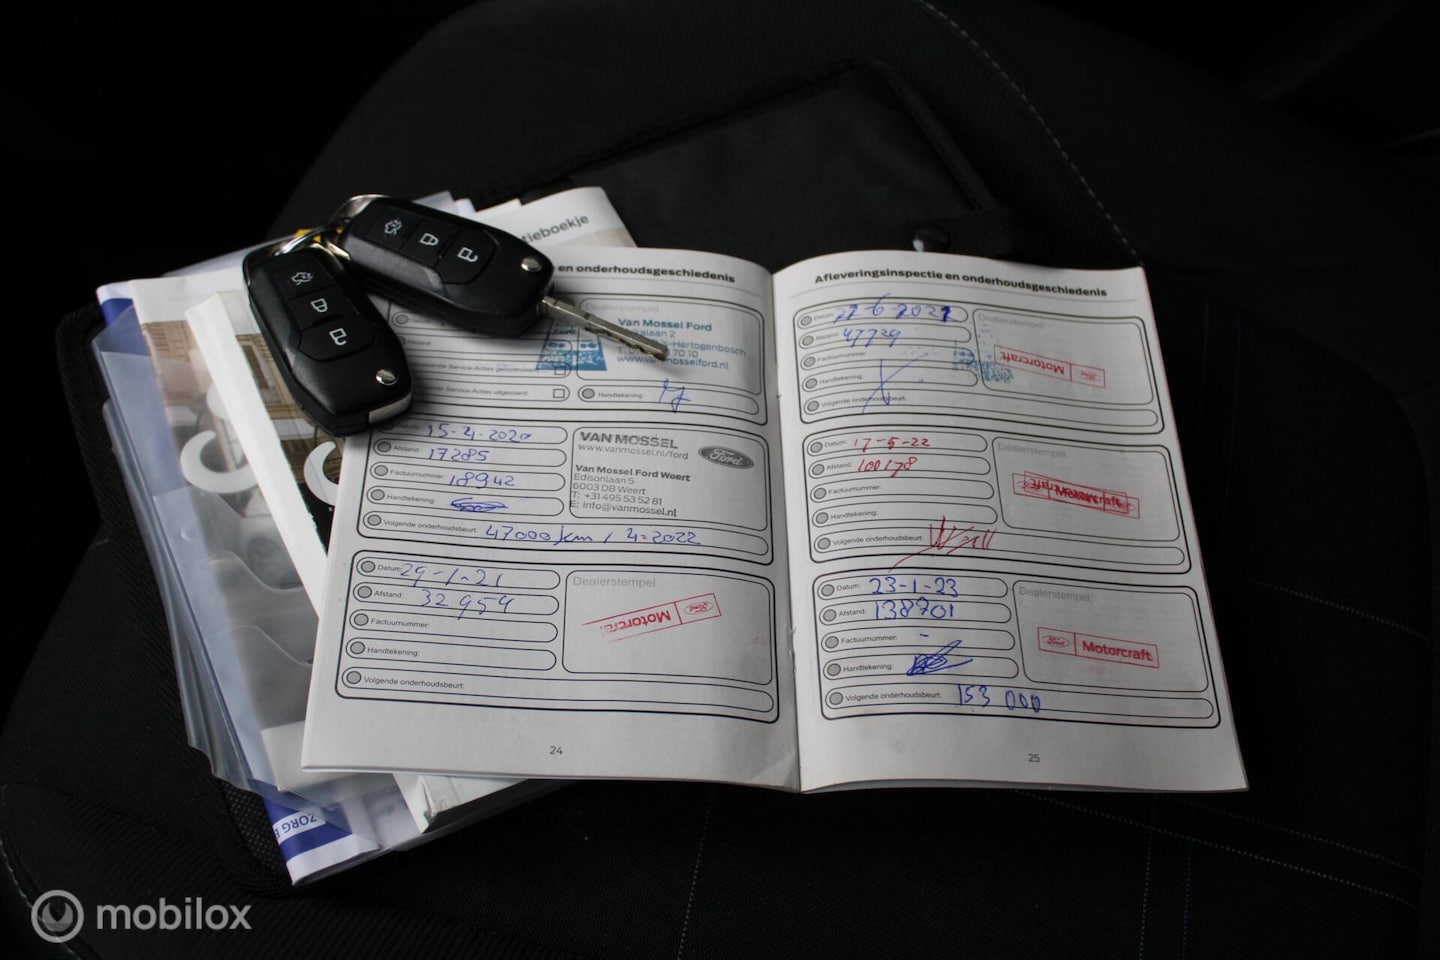 tieboekje
en onderhoudsgeschiedenis
Van Mossel Ford
laan 2
-Hertogenbosch
70 10
www.vanmosselford.nl
Handtekening
Datum: 15-4-2020
Afstand: 17285
Factuurnummer: 18942
Handtekening:
Volgende onderhoudsbeurt: 47000km / 4-2022
VAN MOSSEL
www.vanmossel.nl/ford
Ford
Van Mossel Ford Weert
Edisonlaan 5
6003 DB Weert
T: +31 495 53 52 81
E: info@vanmossel.nl
Datum: 29-1-21
Afstand: 32954
Factuurnummer:
Handtekening:
Volgende onderhoudsbeurt:
Dealerstempel
Motorcraft
24
Afleveringsinspectie en onderhoudsgeschiedenis
Datum: 22-6-2021
Afstand: 47729
Factuurnummer:
Handtekening:
Volgende onderhoudsbeurt:
Dealerstempel
Motorcraft
Datum: 17-5-22
Afstand: 100178
Factuurnummer:
Handtekening:
Volgende onderhoudsbeurt:
Dealerstempel
Motorcraft
Datum: 23-1-23
Afstand: 138701
Factuurnummer: -
Handtekening:
Volgende onderhoudsbeurt: 153 000
Dealerstempel
Ford Motorcraft
25
ZORG
mobilox